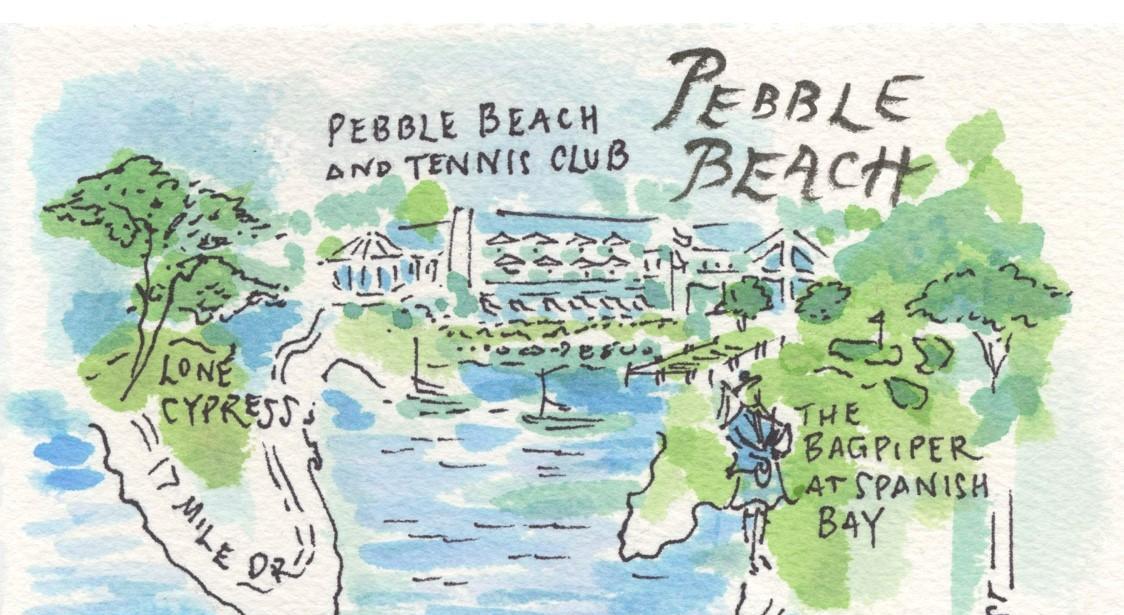 PEBBLE BEACH
AND TENNIS CLUB
PEBBLE
BEACH
LONE
CYPRESS
17 MILE DR
THE
BAGPIPER
AT SPANISH
BAY